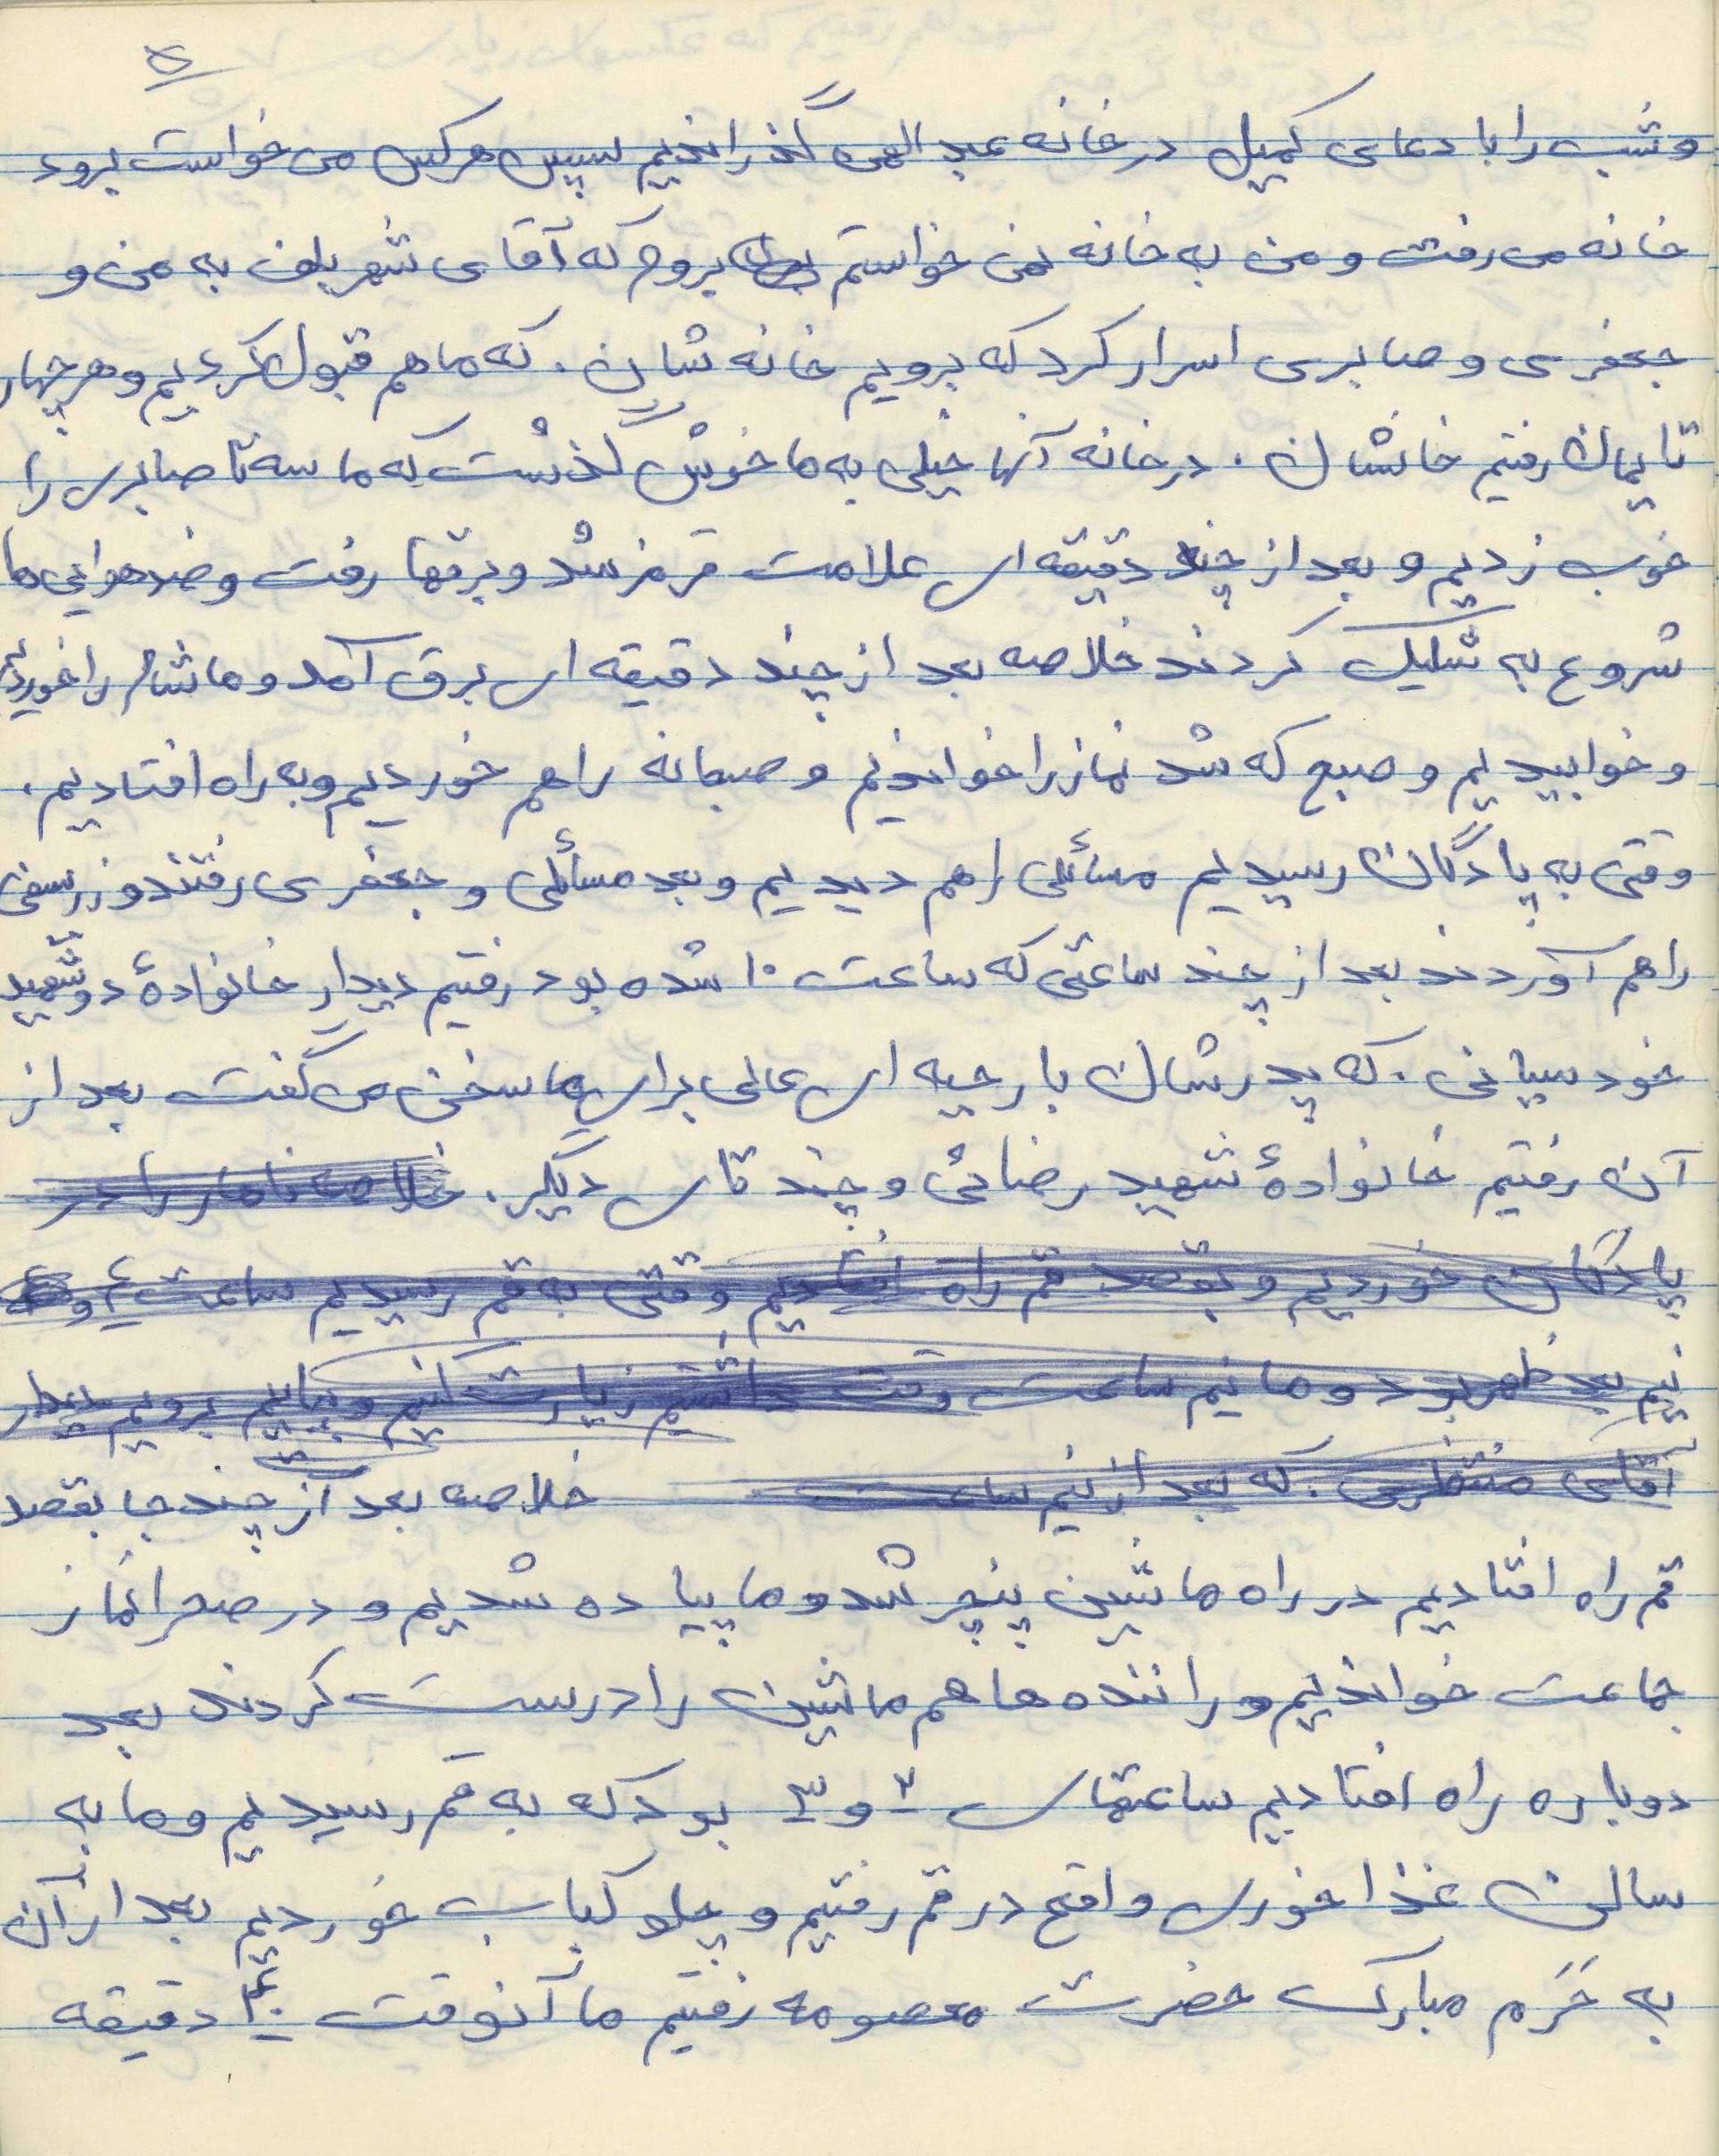 ۵
و شب را با دعای کمیل در خانه عبدالهی گذراندیم سپس هرکس می خواست برود
خانه می رفت و من به خانه نمی خواستم بروم که آقای شعرباف به من و
جعفری و صابری اسرار کرد که برویم خانه شان . که ما هم قبول کردیم و هر چهار
تایمان رفتیم خانشان . در خانه آنها خیلی به ما خوش گذشت که ما سه تا صابری را
خوب زدیم و بعد از چند دقیقه ای علامت قرمز شد و برقها رفت و ضدهوایی ها
شروع به شلیک کردند خلاصه بعد از چند دقیقه ای برق آمد و ما شام را خوردیم
و خوابیدیم و صبح که شد نماز را خواندیم و صبحانه را هم خوردیم و به راه افتادیم .
وقتی به پادگان رسیدیم مسائلی را هم دیدیم و بعد مسائلی و جعفری رفتند و
را هم آوردند بعد از چند ساعتی که ساعت ۱۰ شده بود رفتیم دیدار خانوادهٔ دو شهید
خود سیانی . که پدرشان با رحیه ای عالی برای ما سخن می گفت بعد از
آن رفتیم خانوادهٔ شهید رضائی و چند تای دیگر . خلاصه ناهار را در
پادگان خوردیم و بقصد قم راه افتادیم وقتی به قم رسیدیم ساعت ۴ و
نیم بعد ظهر بود و ما نیم ساعت وقت داشتیم زیارت کنیم و بیاییم برویم دیدار
آقای منتظری . که بعد از نیم ساعت خلاصه بعد از چند جا بقصد
قم راه افتادیم در راه ماشین پنچر شد و ما پیاده شدیم و در صحرا نماز
جماعت خواندیم و راننده ها هم ماشین را درست کردند بعد
دوباره راه افتادیم ساعتهای ۲ و ۳ بود که به قم رسیدیم و ما به
سالن غذا خوری واقع در قم رفتیم و چلو کباب خوردیم بعد از آن
به حَرَم مبارک حضرت معصومه رفتیم ما آنوقت دقیقه